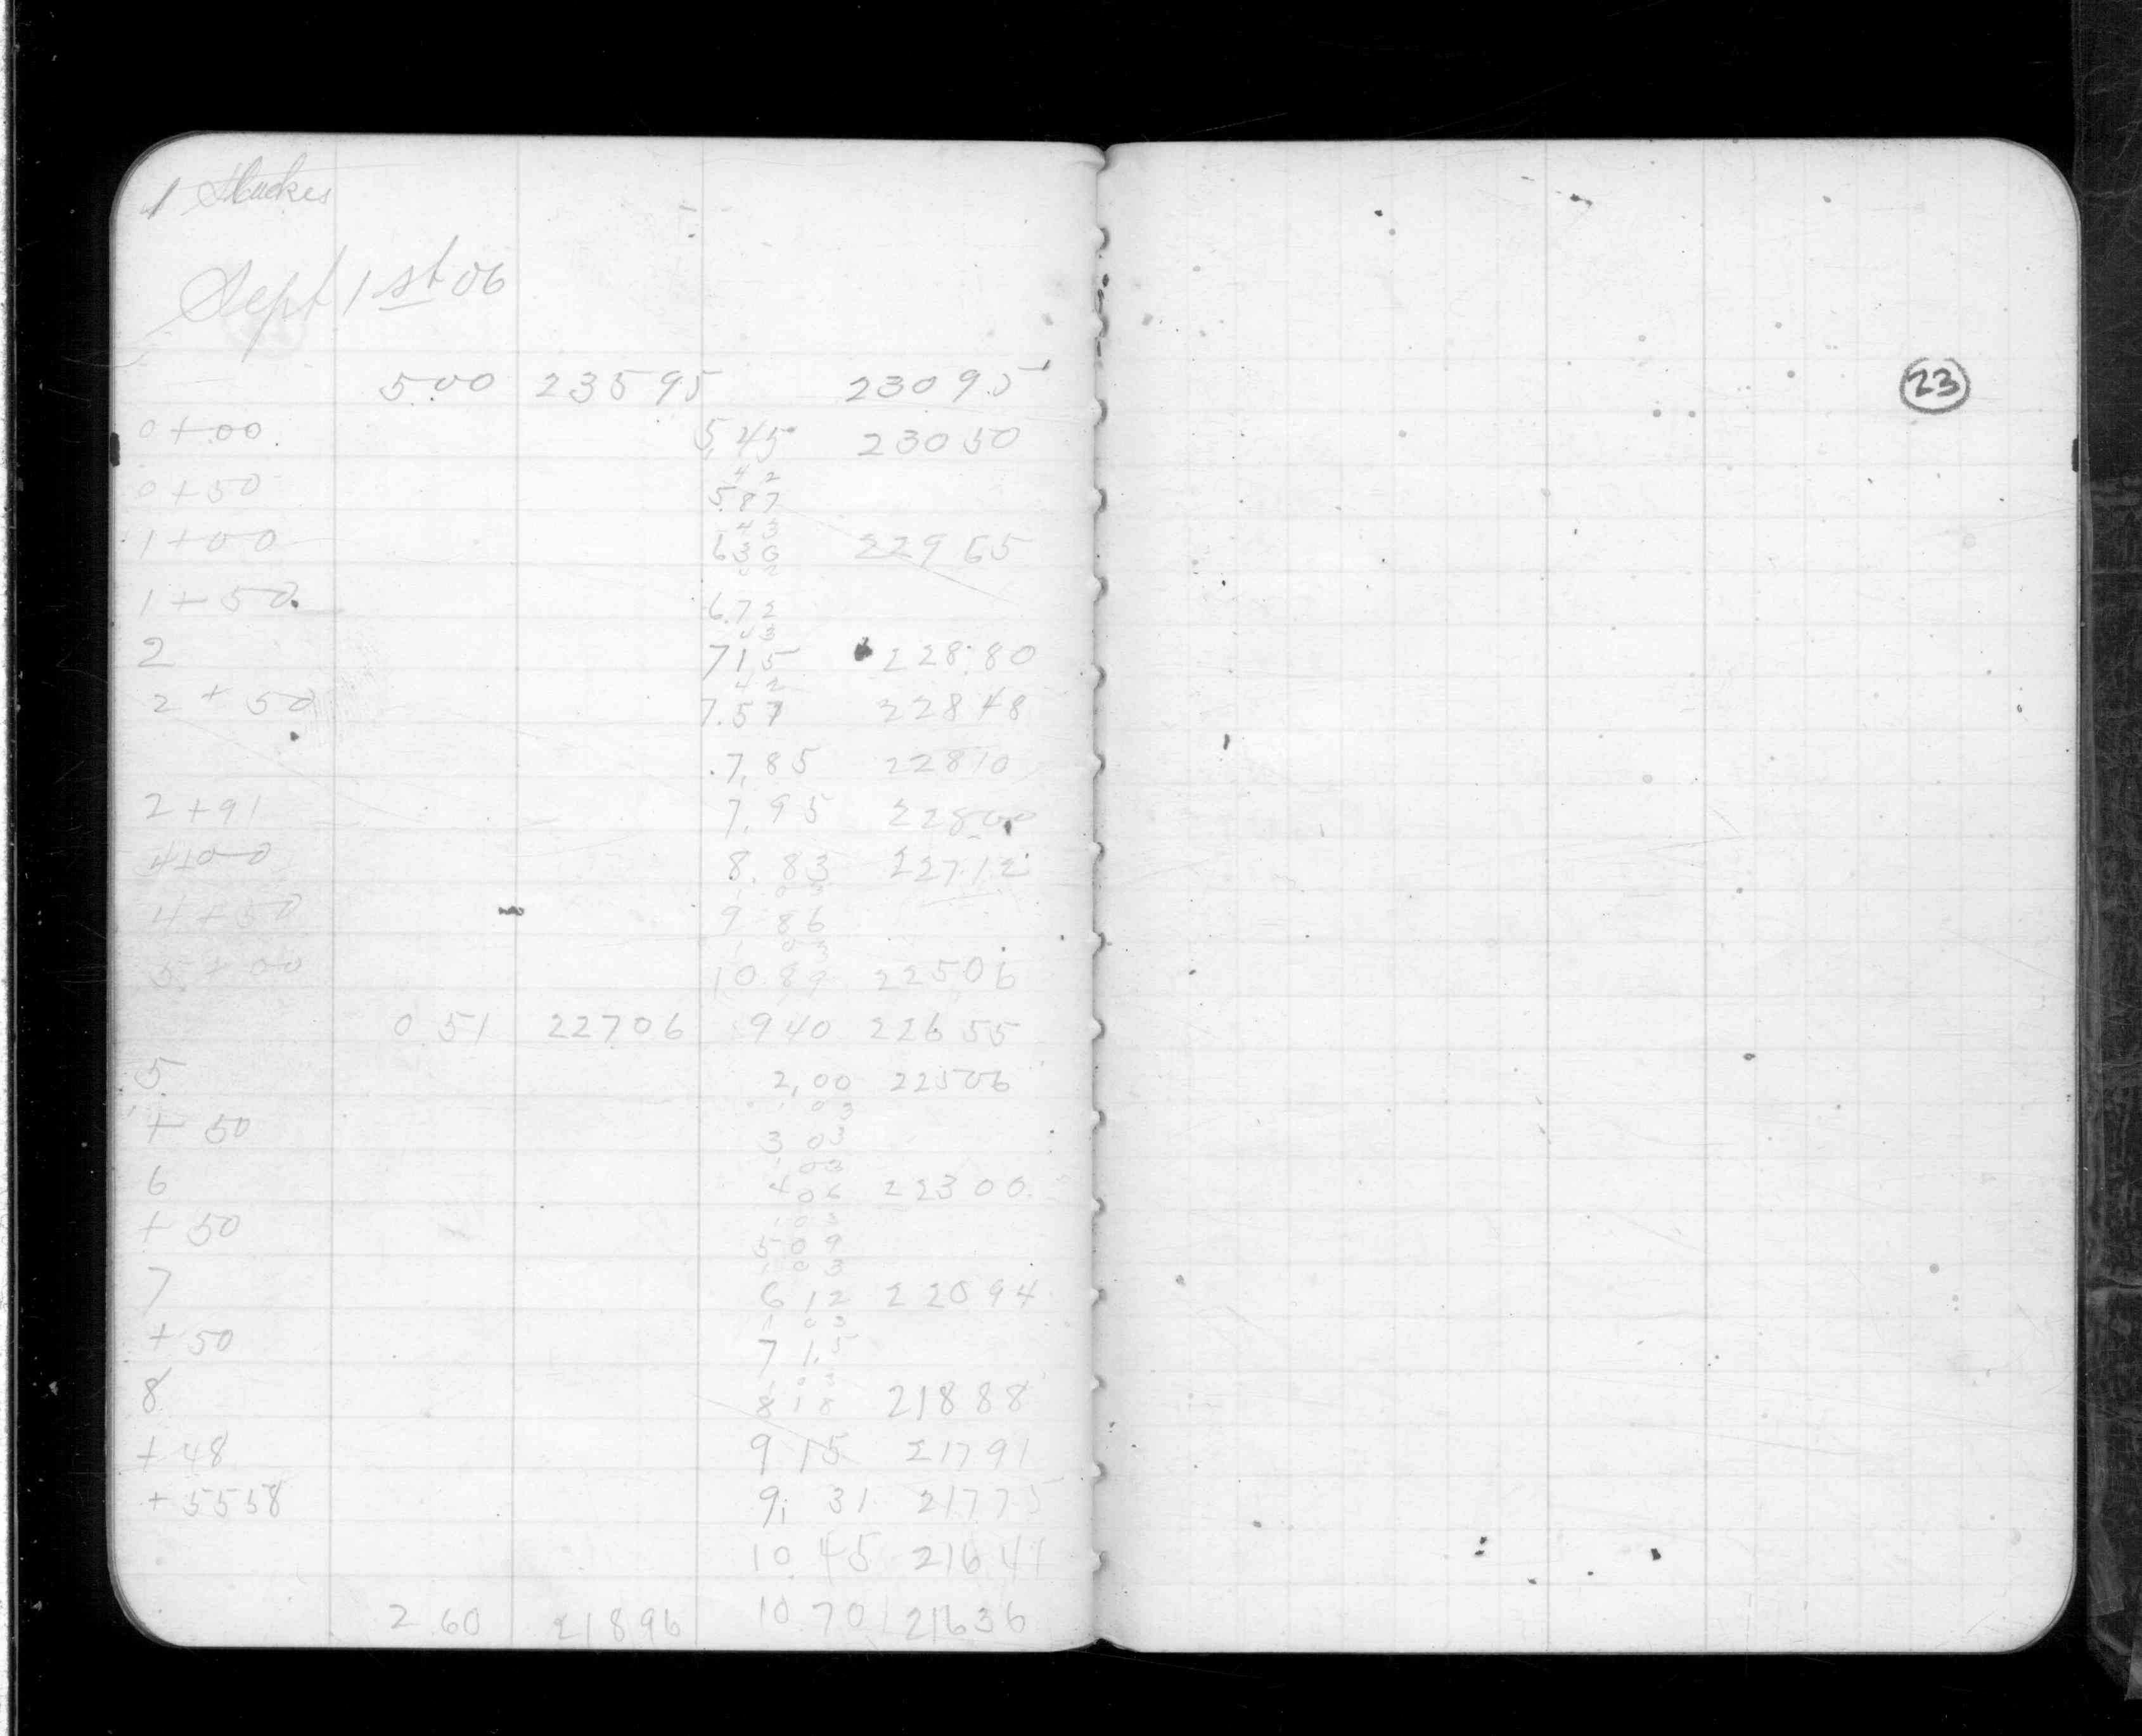 Sept 1st 06
5.00 23595 23095
0+00. 5.45 23050
4 2
0+50 5.87
4 3
1+00 6 30 22965
4 2
1+50. 6.72
4 3
2 7 15 228.80
4 2
2+50 7.57 22848
7.85 22810
2+91 7.95 22800
4+00 8.83 22712
1 03
4+50 9 86
1 03
5+00 10.89 22506
0 51 22706 9 40 226 55
5 2,00 22506
1 03
+ 50 3 03
1 03
6 4 06 22300
1 03
+ 50 5 09
1 03
7 6 12 22094
1 03
+ 50 7 1.5
1 03
8 8 18 21888
+ 48 9 15 21791
+ 5558 9. 31 21775
10.45 21641
2 60 21896 10 70 21636
23